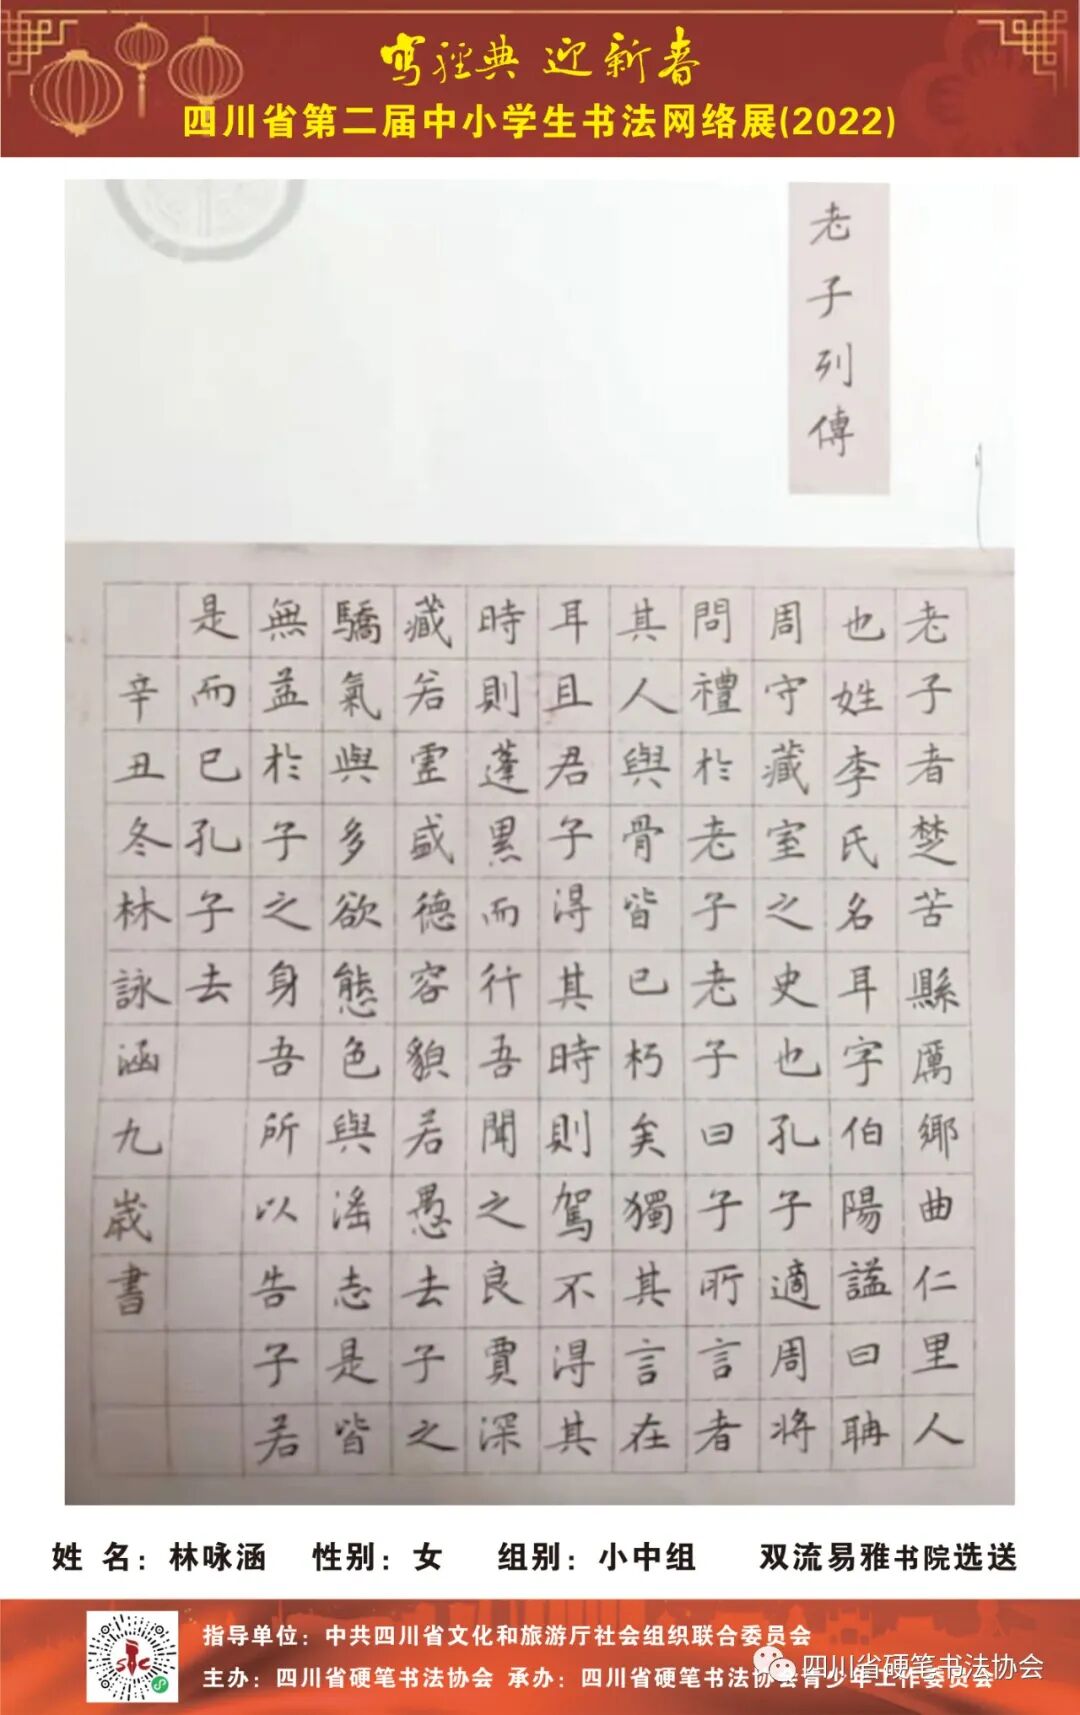 写經典 迎新春
四川省第二届中小学生书法网络展(2022)
老子列傳
老子者楚苦縣厲鄉曲仁里人
也姓李氏名耳字伯陽諡曰聃
周守藏室之史也孔子適周將
問禮於老子老子曰子所言者
其人與骨皆已朽矣獨其言在
耳且君子得其時則駕不得其
時則蓬累而行吾聞之良賈深
藏若虛盛德容貌若愚去子之
驕氣與多欲態色與淫志是皆
無益於子之身吾所以告子若
是而已孔子去
辛丑冬林詠涵九歲書
姓 名：林咏涵 性别：女 组别：小中组 双流易雅书院选送
指导单位：中共四川省文化和旅游厅社会组织联合委员会
主办：四川省硬笔书法协会 承办：四川省硬笔书法协会青少年工作委员会
四川省硬笔书法协会